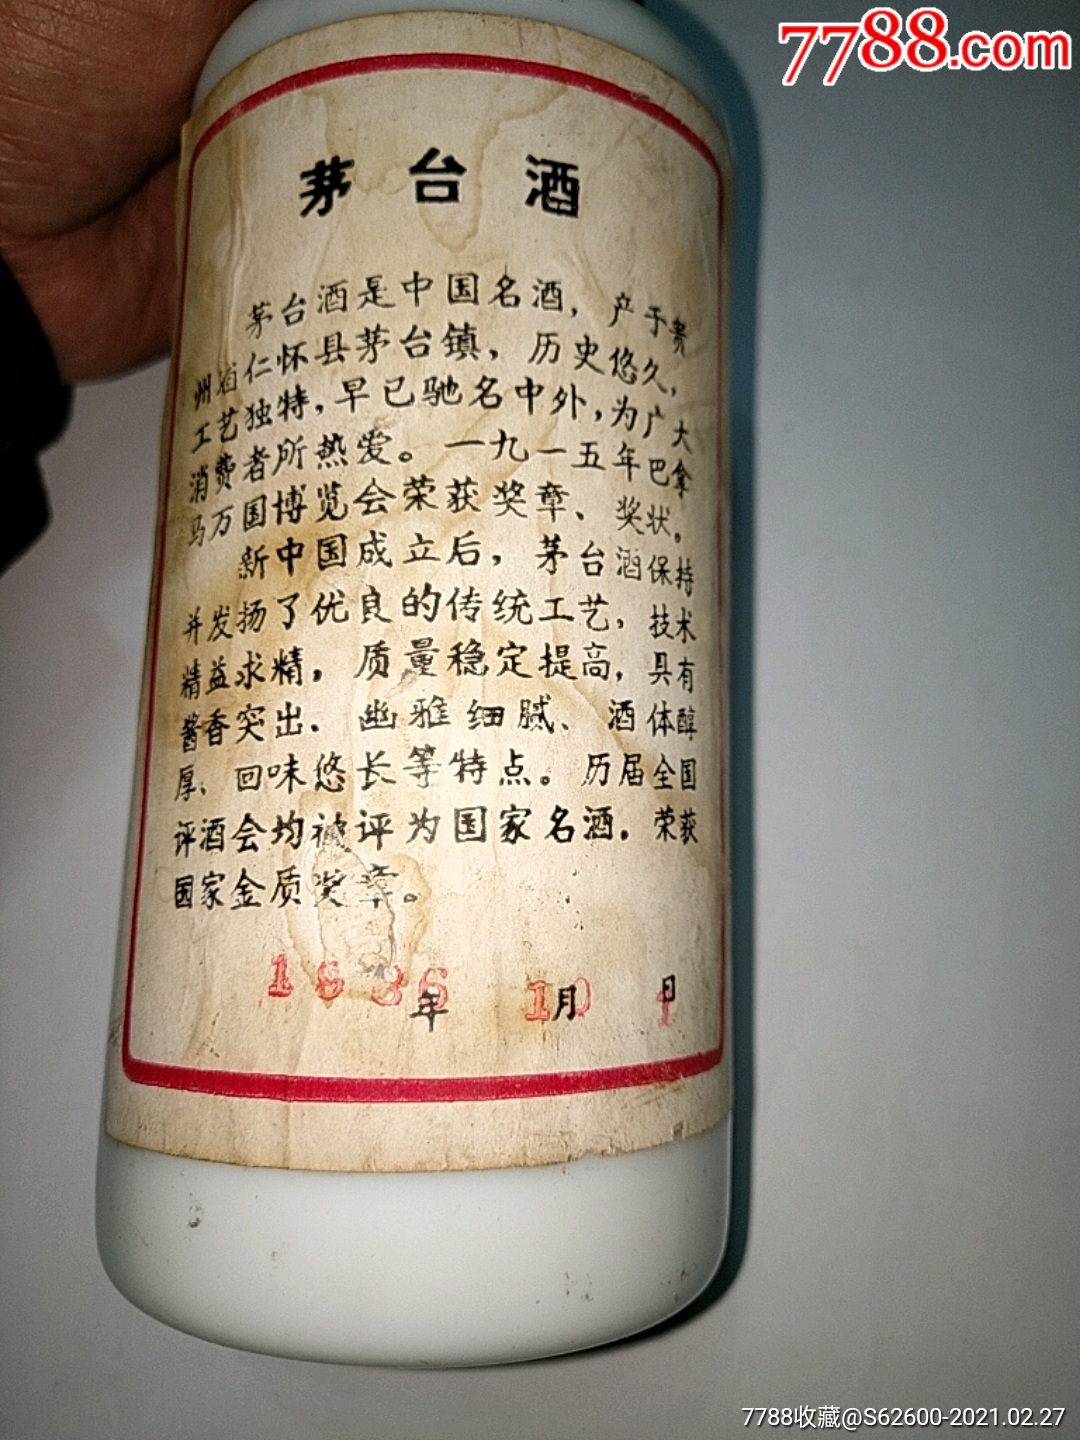 7788.com
茅台酒
茅台酒是中国名酒，产于贵
州省仁怀县茅台镇，历史悠久，
工艺独特，早已驰名中外，为广大
消费者所热爱。一九一五年巴拿
马万国博览会荣获奖章、奖状。
新中国成立后，茅台酒保持
并发扬了优良的传统工艺，技术
精益求精，质量稳定提高，具有
酱香突出、幽雅细腻、酒体醇
厚、回味悠长等特点。历届全国
评酒会均被评为国家名酒。荣获
国家金质奖章。
年 10月 日
7788收藏@S62600-2021.02.27